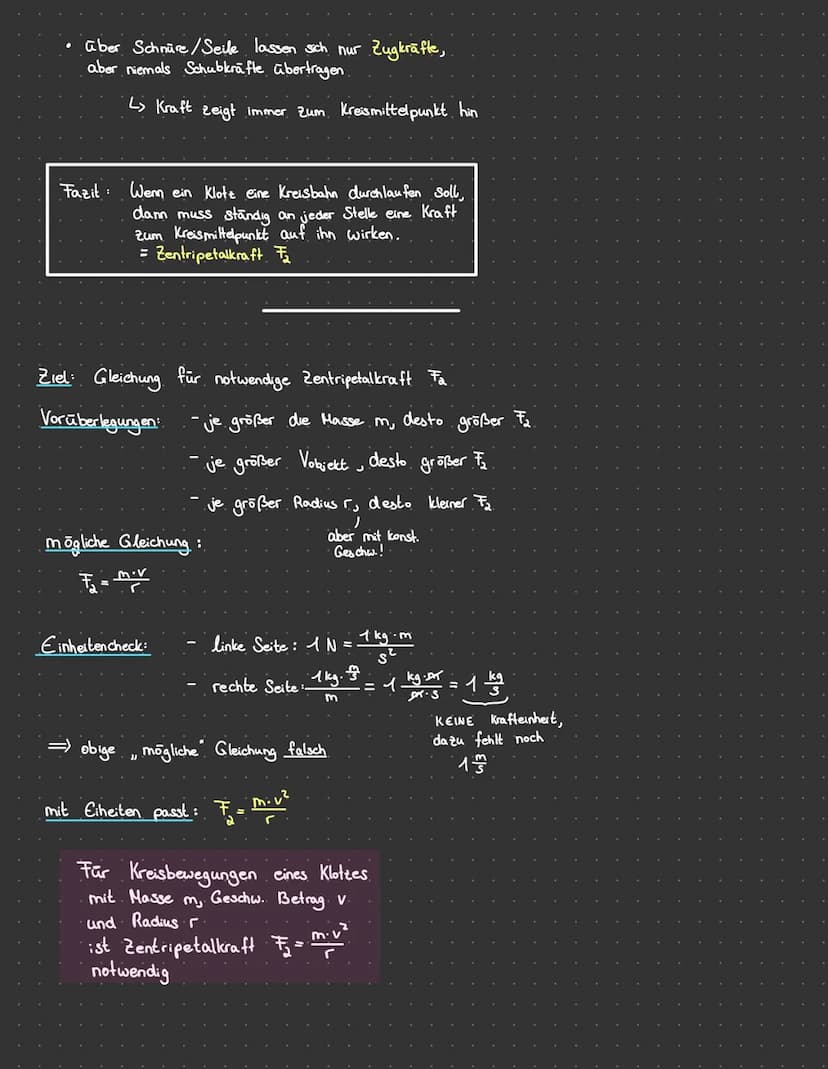 • über Schnüre/Seile lassen sich nur Zugkräfte,
aber niemals Schubkräfte übertragen
↳ Kraft zeigt immer zum Kreismittelpunkt hin
Fazit: Wenn ein Klotz eine Kreisbahn durchlaufen soll,
dann muss ständig an jeder Stelle eine Kraft
zum Kreismittelpunkt auf ihn wirken.
= Zentripetalkraft F_z
Ziel: Gleichung für notwendige Zentripetalkraft F_z
Vorüberlegungen: - je größer die Masse m, desto größer F_z
- je größer V_objekt, desto größer F_z
- je größer Radius r, desto kleiner F_z
aber mit konst.
Geschw.!
mögliche Gleichung:
F_z = m·v/r
Einheitencheck: - linke Seite: 1 N = 1 kg·m/s²
- rechte Seite: 1 kg·m/s / m = 1 kg·m/m·s = 1 kg/s
KEINE Krafteinheit,
dazu fehlt noch
1 m/s
⇒ obige „mögliche" Gleichung falsch
mit Eiheiten passt: F_z = m·v²/r
Für Kreisbewegungen eines Klotzes
mit Masse m, Geschw. Betrag v
und Radius r
ist Zentripetalkraft F_z = m·v²/r
notwendig